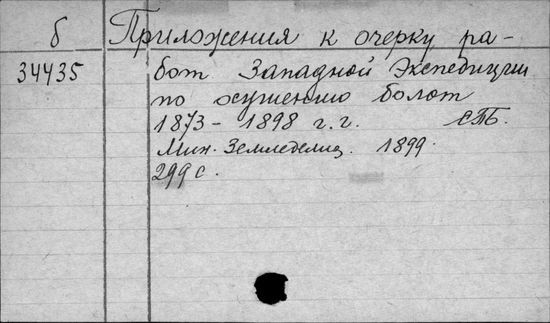 б Приложения к очерку ра-
34435 бот Западной Экспедиции
по осушению болот
1873 - 1898 г.г. СПБ.
Мин. Земледелиц. 1899.
299 с.